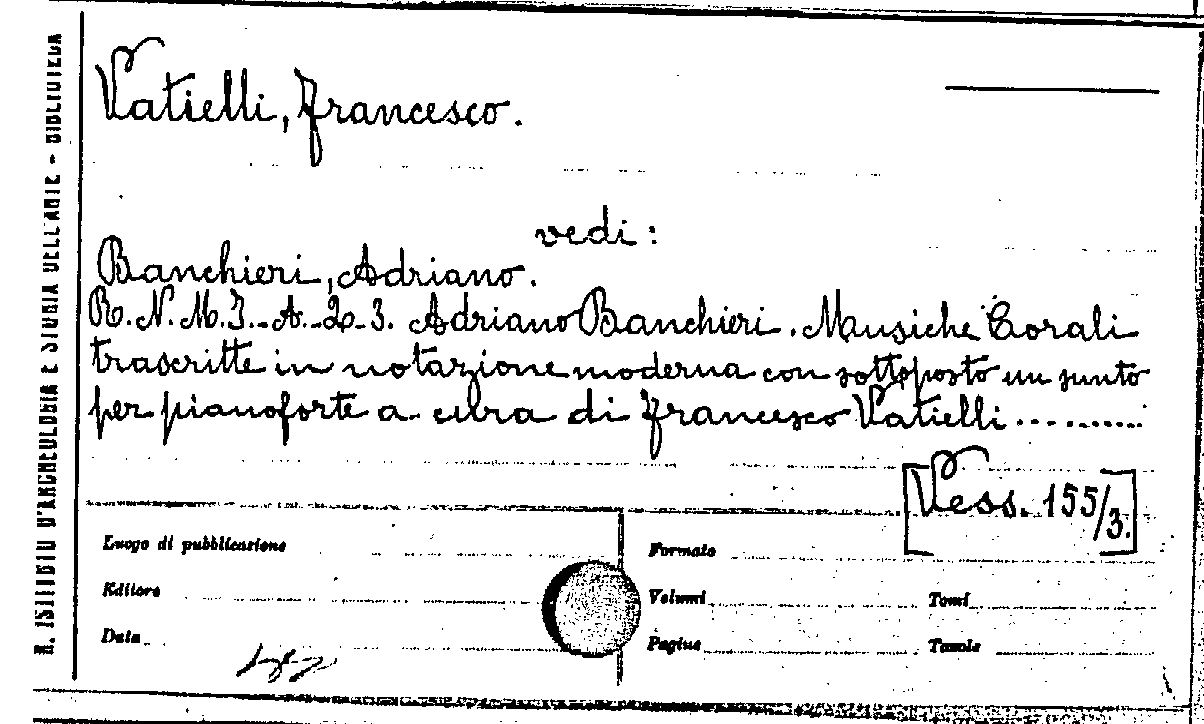 R. ISTITUTO D'ARCHEOLOGIA E STORIA DELL'ARTE - BIBLIOTECA
Vatielli, Francesco.
vedi:
Banchieri, Adriano.
R. N. M. I. - A. - 2 - 3. Adriano Banchieri. Musiche Corali
trascritte in notazione moderna con sottoposto un sunto
per pianoforte a cura di Francesco Vatielli..........
[Vess. 155/3.]
Luogo di pubblicazione
Formato
Editore
Volumi
Tomi
Data
Pagine
Tavole